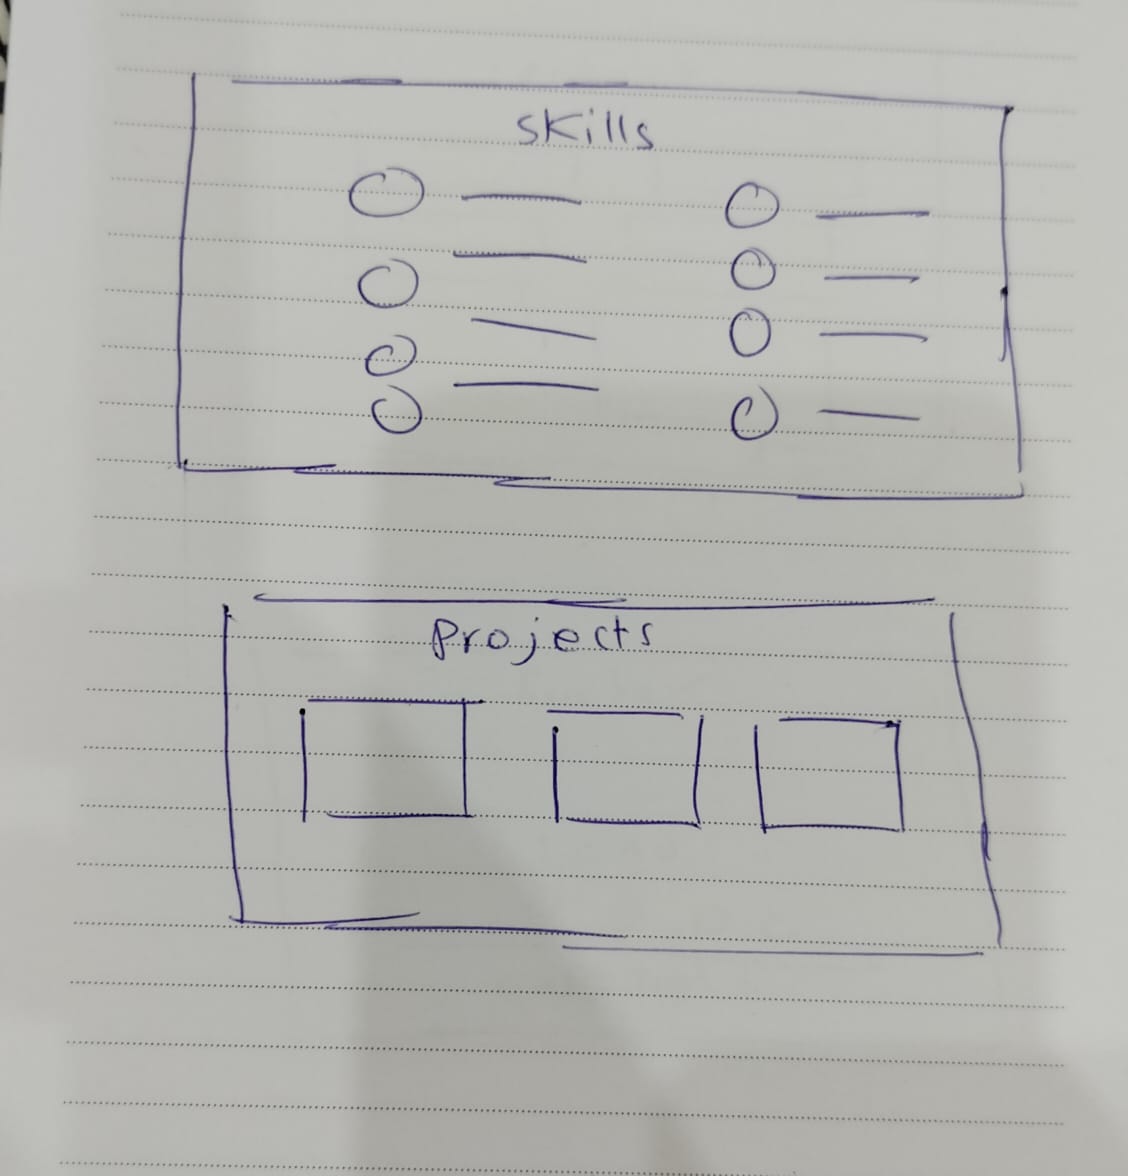 skills
Projects